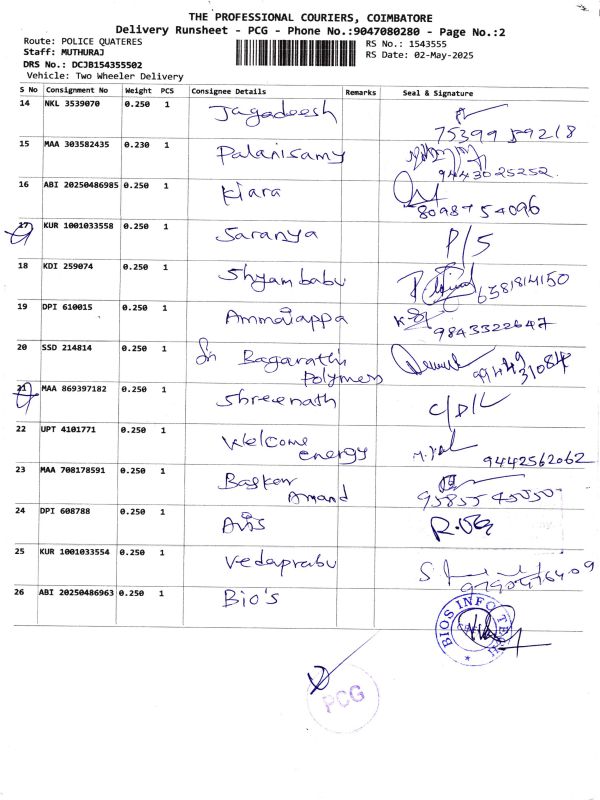 THE PROFESSIONAL COURIERS, COIMBATORE
Delivery Runsheet - PCG - Phone No.:9047080280 - Page No.:2
Route: POLICE QUATERES
RS No.: 1543555
Staff: MUTHURAJ
RS Date: 02-May-2025
DRS No.: DCJB154355502
Vehicle: Two Wheeler Delivery
S No Consignment No Weight PCS Consignee Details Remarks Seal & Signature
14 NKL 3539070 0.250 1 Jagadeesh
75399 59218
15 MAA 303582435 0.230 1 Palanisamy
9443025252
16 ABI 20250486985 0.250 1 Kiara
8098754096
17 KUR 1001033558 0.250 1 Saranya P/S
18 KDI 259074 0.250 1 Shyam babu
6381814150
19 DPI 610015 0.250 1 Ammaiappa
9843322647
20 SSD 214814 0.250 1 Sri Bagarathi
Polymers 99449
31084
21 MAA 869397182 0.250 1 Shreenath C/D/L
22 UPT 4101771 0.250 1 Welcome
energy 9442562062
23 MAA 708178591 0.250 1 Basker
Anand
24 DPI 608788 0.250 1
25 KUR 1001033554 0.250 1 Vedaprabu
26 ABI 20250486963 0.250 1 Bio's
BIOS INFO TECH
PCG